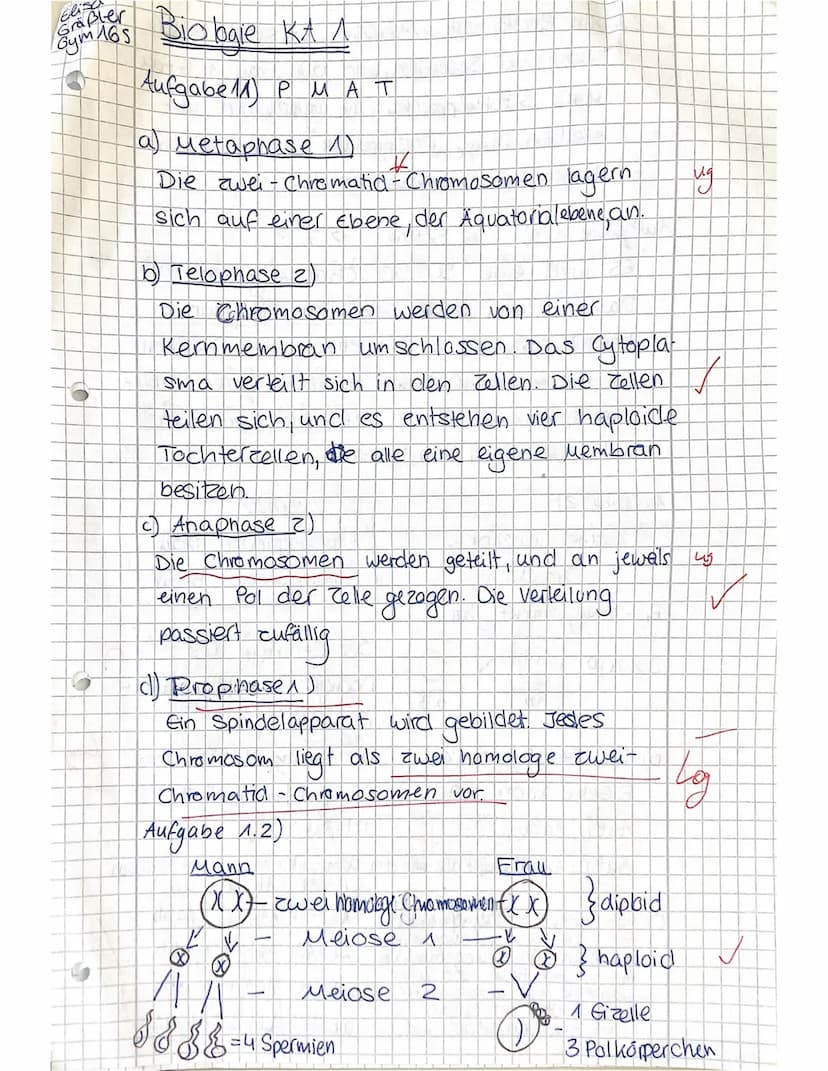 Elisa
Gräßler
Gym16S
Biologie KA 1
Aufgabe 1.1) P M A T
a) Metaphase 1)
Die zwei-Chromatid-Chromosomen lagern
ug
sich auf einer Ebene, der Äquatorialebene, an.
b) Telophase 2)
Die Chromosomen werden von einer
Kernmembran umschlossen. Das Cytopla-
sma verteilt sich in den Zellen. Die Zellen
teilen sich, und es entstehen vier haploide
Tochterzellen, die alle eine eigene Membran
besitzen.
c) Anaphase 2)
Die Chromosomen werden geteilt, und an jeweils
ug
einen Pol der Zelle gezogen. Die Verteilung
passiert zufällig
d) Prophase 1)
Ein Spindelapparat wird gebildet. Jedes
Chromosom liegt als zwei homologe zwei-
Log
Chromatid-Chromosomen vor.
Aufgabe 1.2)
Mann Frau
X X - zwei homologe Chromosomen - X X } diploid
- Meiose 1 -
X X X X } haploid
- Meiose 2 -
= 4 Spermien
1 Eizelle
3 Polkörperchen